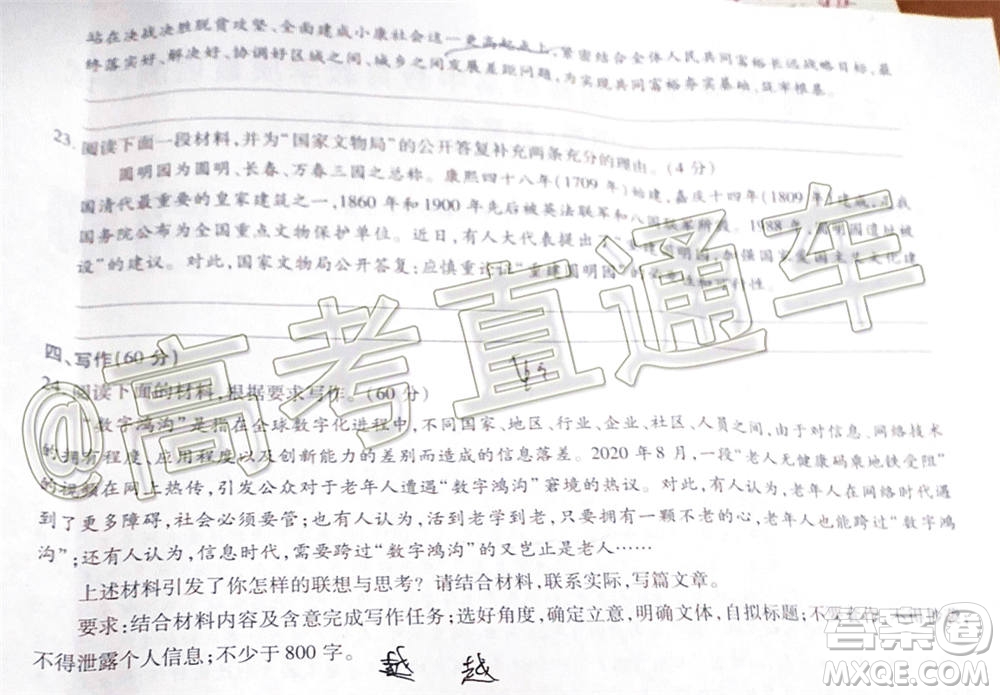 站在决战决胜脱贫攻坚、全面建成小康社会这一更高起点上,紧密结合全体人民共同富裕长远战略目标,最
终落实好、解决好、协调好区域之间、城乡之间的发展差距问题,为实现共同富裕夯实基础、筑牢根基。
23. 阅读下面一段材料,并为“国家文物局”的公开答复补充两条充分的理由。(4分)
圆明园为圆明、长春、万春三园之总称。康熙四十八年(1709年)始建,嘉庆十四年(1809年)建成,是我
国清代最重要的皇家建筑之一,1860年和1900年先后被英法联军和八国联军所毁。1988年,圆明园遗址被
国务院公布为全国重点文物保护单位。近日,有人大代表提出了“重建圆明园,加强国家爱国主义文化建
设”的建议。对此,国家文物局公开答复:应慎重论证“重建圆明园”的必要性和可行性。
四、写作(60分)
24. 阅读下面的材料,根据要求写作。(60分)
“数字鸿沟”是指在全球数字化进程中,不同国家、地区、行业、企业、社区、人员之间,由于对信息、网络技术
的拥有程度、应用程度以及创新能力的差别而造成的信息落差。2020年8月,一段“老人无健康码乘地铁受阻”
的视频在网上热传,引发公众对于老年人遭遇“数字鸿沟”窘境的热议。对此,有人认为,老年人在网络时代遇
到了更多障碍,社会必须要管;也有人认为,活到老学到老,只要拥有一颗不老的心,老年人也能跨过“数字鸿
沟”;还有人认为,信息时代,需要跨过“数字鸿沟”的又岂止是老人……
上述材料引发了你怎样的联想与思考?请结合材料,联系实际,写篇文章。
要求:结合材料内容及含意完成写作任务;选好角度,确定立意,明确文体,自拟标题;不要套作,不得抄袭;
不得泄露个人信息;不少于800字。
@高考直通车
答案圈
MXQE.COM
越